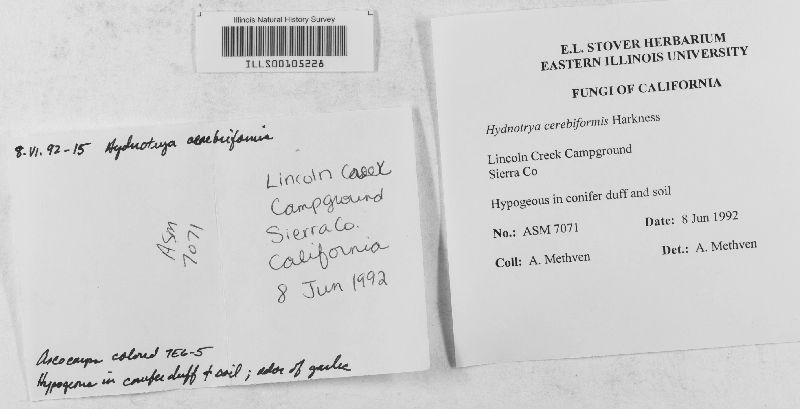 Illinois Natural History Survey
ILLS00105226
8.VI.92-15 Hydnotrya cerebriformis
ASM
7071
Lincoln Creek
Campground
Sierra Co.
California
8 Jun 1992
Ascocarps colored 7E6-5
Hypogeous in conifer duff + soil; odor of garlic
E.L. STOVER HERBARIUM
EASTERN ILLINOIS UNIVERSITY
FUNGI OF CALIFORNIA
Hydnotrya cerebiformis Harkness
Lincoln Creek Campground
Sierra Co
Hypogeous in conifer duff and soil
No.: ASM 7071 Date: 8 Jun 1992
Coll: A. Methven Det.: A. Methven